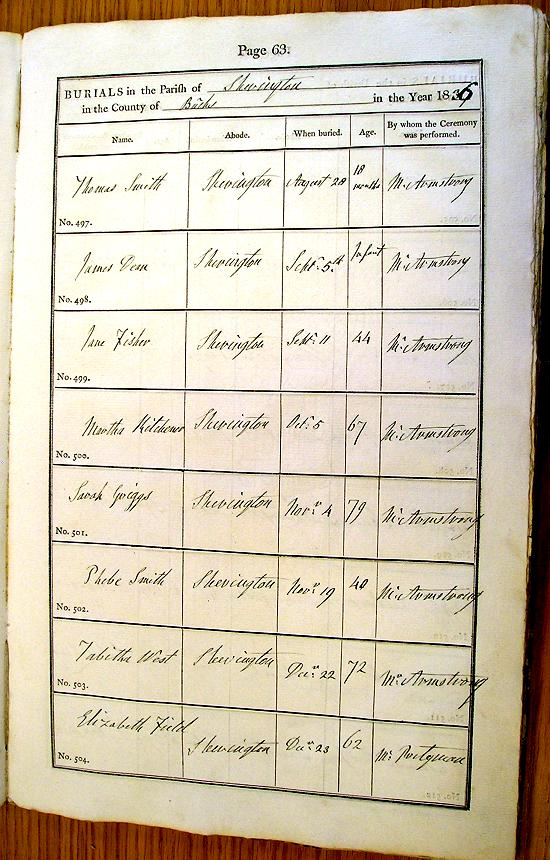 Page 63.
BURIALS in the Parish of Shevington
in the County of Bucks in the Year 1836
Name. Abode. When buried. Age. By whom the Ceremony was performed.
Thomas Smith Shevington August 28 18 months Mr Armstrong
No. 497.
James Dean Shevington Septr 5th Infant Mr Armstrong
No. 498.
Jane Fisher Shevington Septr 11 44 Mr Armstrong
No. 499.
Martha Kitchener Shevington Octr 5 67 Mr Armstrong
No. 500.
Sarah Griggs Shevington Novr 4 79 Mr Armstrong
No. 501.
Phebe Smith Shevington Novr 19 40 Mr Armstrong
No. 502.
Tabitha West Shevington Decr 22 72 Mr Armstrong
No. 503.
Elizabeth Field Shevington Decr 23 62 Mr
No. 504.